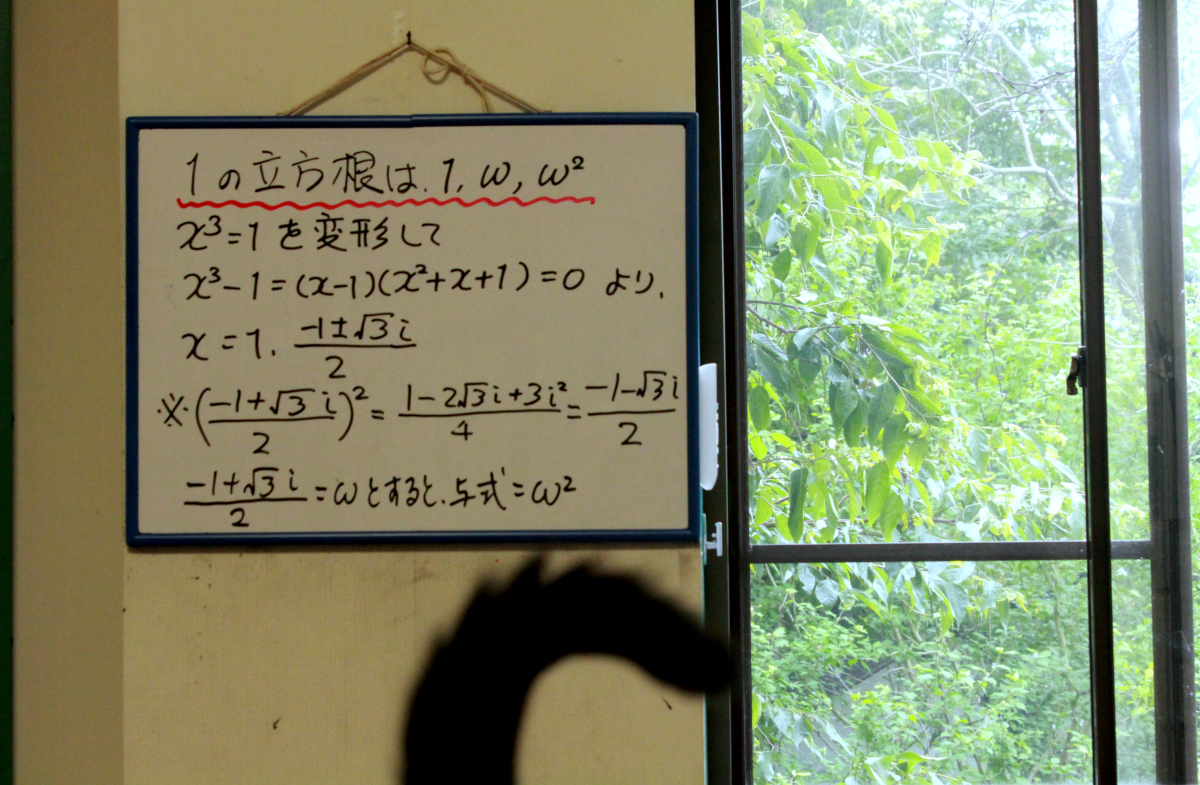 1の立方根は、1, ω, ω²
x³=1を変形して
x³-1=(x-1)(x²+x+1)=0 より、
x=1, (-1±√3i)/2
※((-1+√3i)/2)²=(1-2√3i+3i²)/4=(-1-√3i)/2
(-1+√3i)/2=ωとすると、与式=ω²